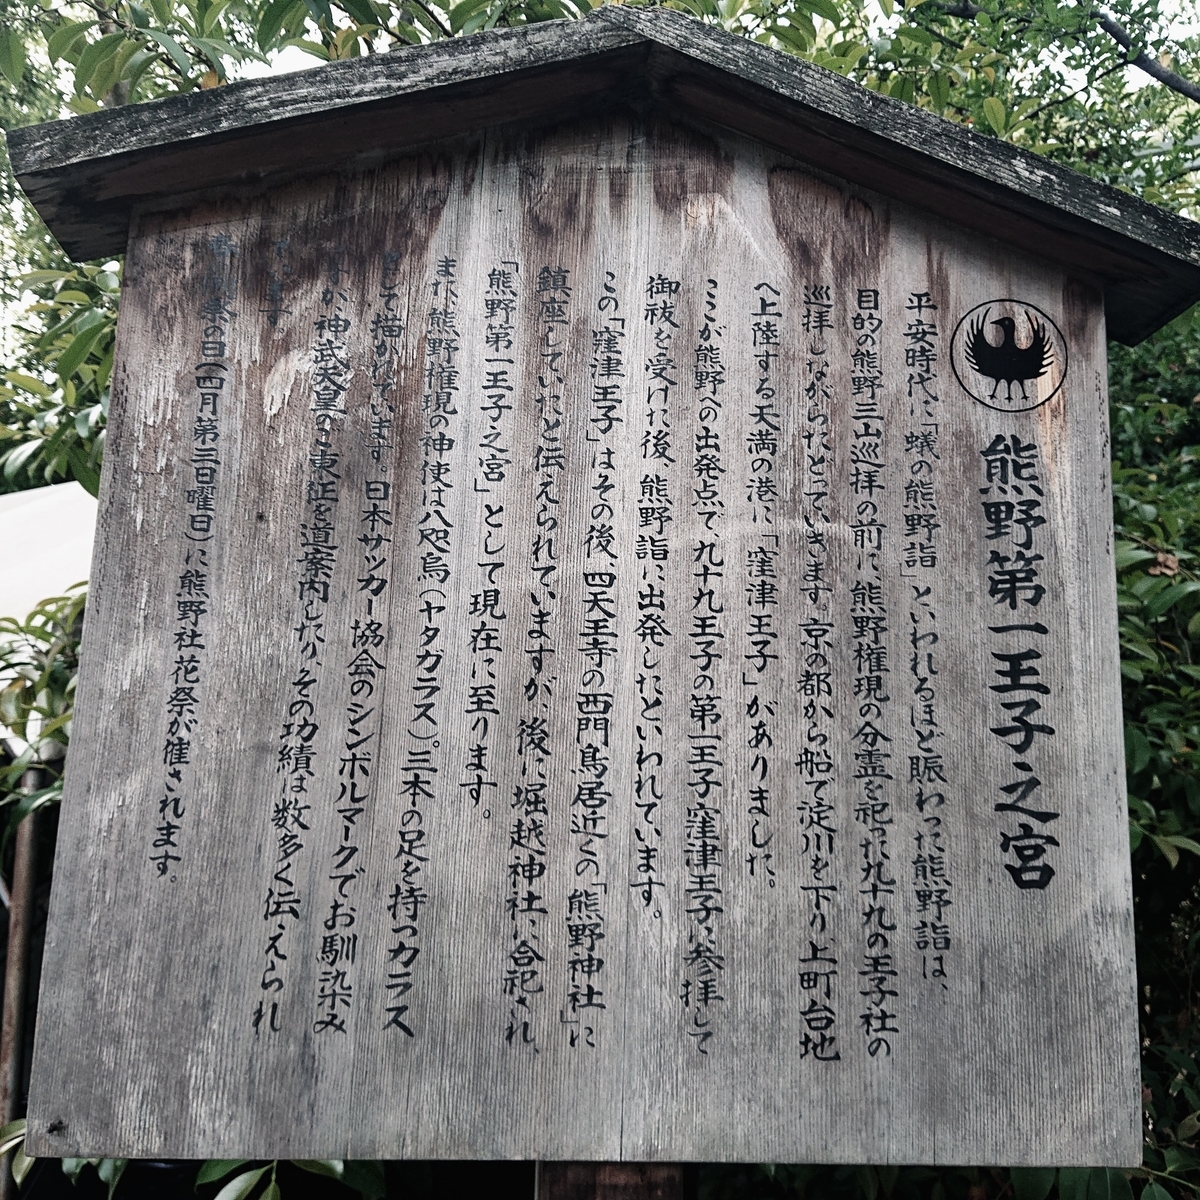 熊野第一王子之宮
平安時代に「蟻の熊野詣」といわれるほど賑わった熊野詣は、
目的の熊野三山巡拝の前に、熊野権現の分霊を祀った九十九の王子社の
巡拝しながらたどっていきます。京の都から船で淀川を下り上町台地
へ上陸する天満の港に「窪津王子」がありました。
ここが熊野への出発点で、九十九王子の第一王子窪津王子に参拝して
御祓を受けた後、熊野詣に出発したといわれています。
この「窪津王子」はその後、四天王寺の西門鳥居近くの「熊野神社」に
鎮座していたと伝えられていますが、後に堀越神社に合祀され、
「熊野第一王子之宮」として現在に至ります。
また、熊野権現の神使は八咫烏(ヤタガラス)。三本の足を持つカラス
として描かれています。日本サッカー協会のシンボルマークでお馴染み
が、神武天皇のご東征を道案内したり、その功績は数多く伝えられ
ています。
祭の日(四月第三日曜日)に熊野社花祭が催されます。